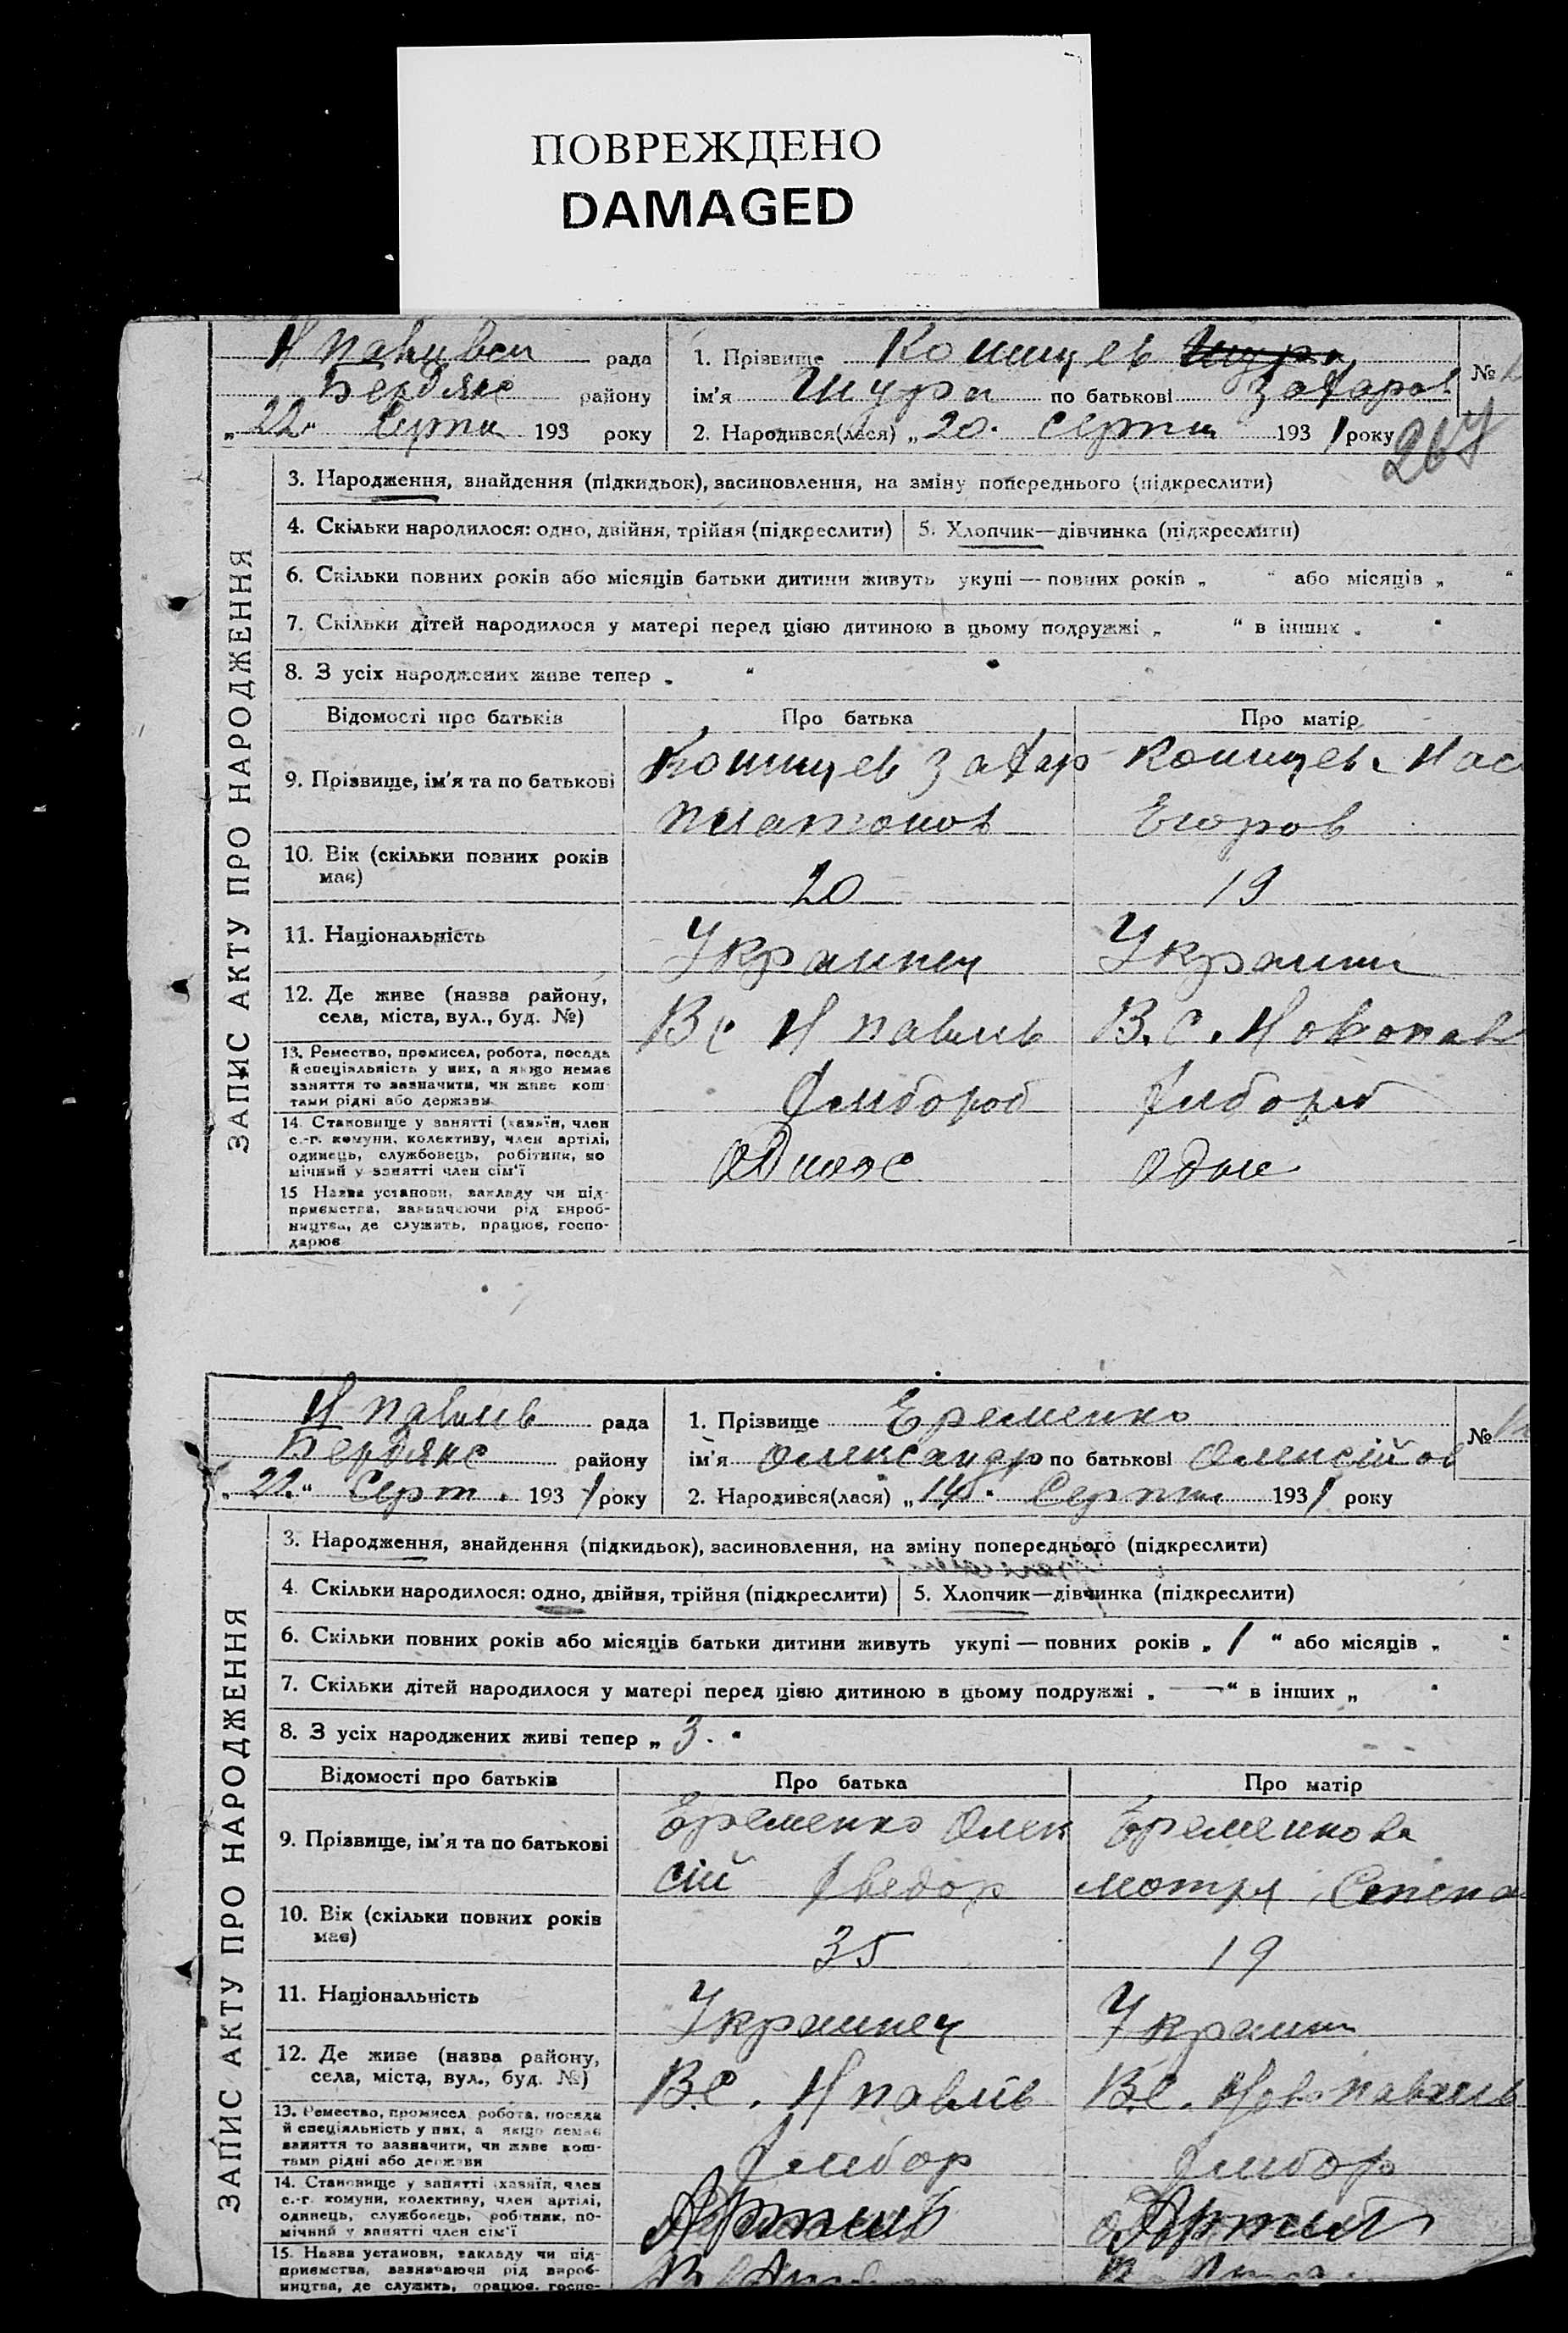 ПОВРЕЖДЕНО
DAMAGED
рада
Бердянс району
„22“ Серпн 193 року
1. Прізвище Кошицев
ім'я Шура по батькові Захаров
2. Народився(лася) „20“ Серпн 1931 року
№
267
ЗАПИС АКТУ ПРО НАРОДЖЕННЯ
3. Народження, знайдення (підкидьок), засиновлення, на зміну попереднього (підкреслити)
4. Скільки народилося: одно, двійня, трійня (підкреслити) 5. Хлопчик—дівчинка (підкреслити)
6. Скільки повних років або місяців батьки дитини живуть укупі — повних років „ “ або місяців „ “
7. Скільки дітей народилося у матері перед цією дитиною в цьому подружжі „ “ в інших „ “
8. З усіх народжених живе тепер „ “
Відомості про батьків Про батька Про матір
9. Прізвище, ім'я та по батькові
Кошицев Захар Кошицев. Нас
Платонов Егоров
10. Вік (скільки повних років має)
20 19
11. Національність
Украинец Украин
12. Де живе (назва району, села, міста, вул., буд. №)
В с Н павлів В. С. Новопав
13. Ремество, промисел, робота, посада
й спеціяльність у них, а якщо немає
заняття то зазначити, чи живе кош-
тами рідні або держави
Хлібороб Хлібороб
14. Становище у занятті (хазяїн, член
с.-г. комуни, колективу, член артілі,
одинець, службовець, робітник, по
мічний у занятті член сім'ї
15 Назва установи, закладу чи під-
приємства, зазначаючи рід вироб-
ництва, де служить, працює, госпо-
дарює
Н павлів рада
Бердянс району
„22“ Серп. 1931 року
1. Прізвище Еременко
ім'я Олександр по батькові Олексійов
2. Народився(лася) „ “ Серпн 1931 року
№
ЗАПИС АКТУ ПРО НАРОДЖЕННЯ
3. Народження, знайдення (підкидьок), засиновлення, на зміну попереднього (підкреслити)
4. Скільки народилося: одно, двійня, трійня (підкреслити) 5. Хлопчик—дівчинка (підкреслити)
6. Скільки повних років або місяців батьки дитини живуть укупі — повних років „ 1 “ або місяців „ “
7. Скільки дітей народилося у матері перед цією дитиною в цьому подружжі „ — “ в інших „ “
8. З усіх народжених живі тепер „ 3. “
Відомості про батьків Про батька Про матір
9. Прізвище, ім'я та по батькові
Еременко Олек Еременкова
сій Хведор мотря Степа
10. Вік (скільки повних років має)
35 19
11. Національність
Украинец Украин
12. Де живе (назва району, села, міста, вул., буд. №)
В.С. Н павлів В.С. Новопавлів
13. Ремество, промисел робота, посада
й спеціяльність у них, а якщо немає
заняття то зазначити, чи живе кош-
тами рідні або держави
Хлібор Хлібор
14. Становище у занятті хазяїн, член
с.-г. комуни, колективу, член артілі,
одинець, службовець, робітник, по-
мічний у занятті член сім'ї
Артіль Артіль
15. Назва установи, закладу чи під-
приємства, зазначаючи рід вироб-
ництва, де служить, працює, госпо-